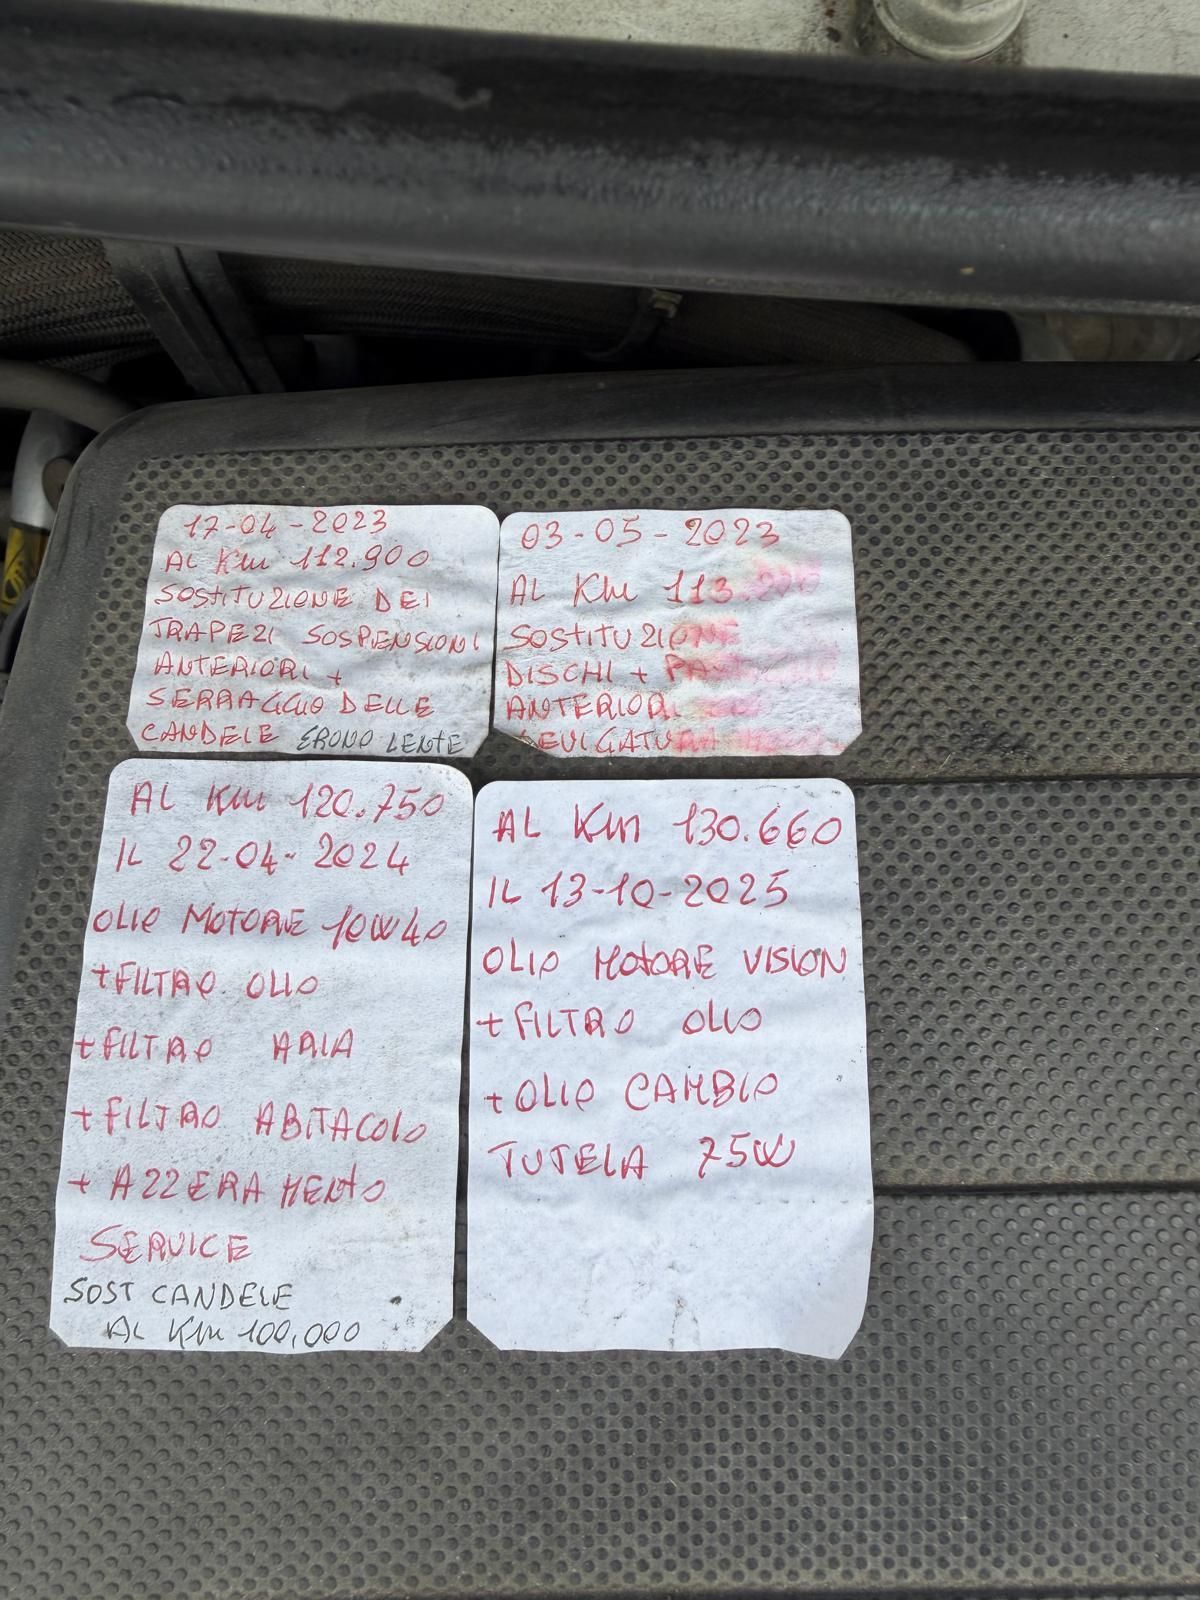 17-04-2023
AL Km 112.900
SOSTITUZIONE DEI
TRAPEZI SOSPENSIONI
ANTERIORI +
SERRAGGIO DELLE
CANDELE ERONO LENTE
03-05-2023
AL Km 113.
SOSTITUZIONE
DISCHI +
ANTERIORI
AL Km 120.750
IL 22-04-2024
OLIO MOTORE 10W40
+FILTRO OLIO
+FILTRO ARIA
+FILTRO ABITACOLO
+ AZZERAMENTO
SERVICE
SOST CANDELE
AL Km 100,000
AL Km 130.660
IL 13-10-2025
OLIO MOTORE VISION
+FILTRO OLIO
+OLIO CAMBIO
TUTELA 75W